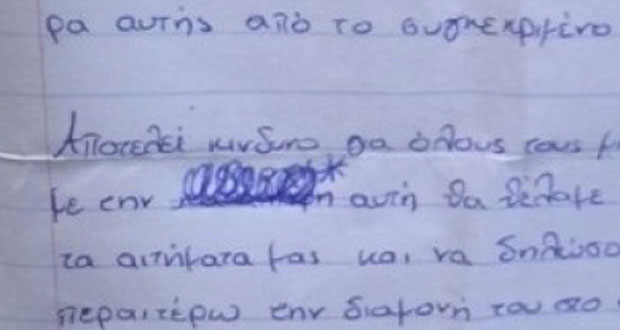 ρα αυτής από το συγκεκριμένο
Αποτελεί κινδυνο για όλους τους
με την αυτή θα θέλαμε
τα αιτήματα μας και να δηλώσο
περαιτέρω την διαμονή του στο